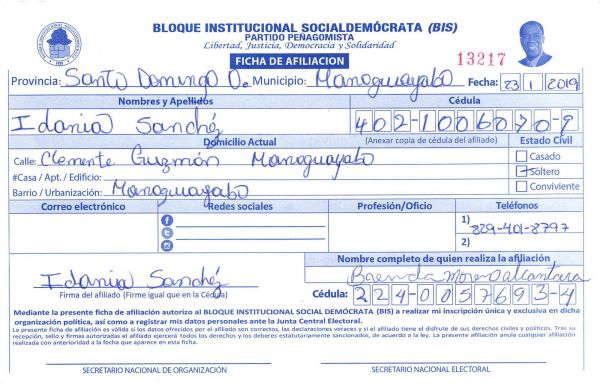 BLOQUE INSTITUCIONAL SOCIALDEMÓCRATA (BIS)
PARTIDO PEÑAGOMISTA
Libertad, Justicia, Democracia y Solidaridad
FICHA DE AFILIACION
13217
Provincia: Santo Domingo O. Municipio: Manoguayabo Fecha: 23 1 2019
Nombres y Apellidos Cédula
Idania Sanchéz 402-1006070-9
Domicilio Actual (Anexar copia de cédula del afiliado) Estado Civil
Calle: Clemente Guzmán Manoguayabo Casado
#Casa / Apt. / Edificio: Sóltero
Barrio / Urbanización: Manoguayabo Conviviente
Correo electrónico Redes sociales Profesión/Oficio Teléfonos
1) 829-401-8797
2)
Nombre completo de quien realiza la afiliación
Idania Sanchéz Brenda Alcantara
Firma del afiliado (Firme igual que en la Cédula) Cédula: 224-0057693-4
Mediante la presente ficha de afiliación autorizo al BLOQUE INSTITUCIONAL SOCIAL DEMÓCRATA (BIS) a realizar mi inscripción única y exclusiva en dicha
organización política, así como a registrar mis datos personales ante la Junta Central Electoral.
La presente ficha de afiliación es válida si los datos ofrecidos por el afiliado son correctos, las declaraciones veraces y si el afiliado tiene el disfrute de sus derechos civiles y políticos. Tras su
recepción, sello y firmas autorizadas el afiliado ejercerá todos los derechos y los deberes estatutariamente sancionados, de acuerdo a la ley. La presente afiliación anula cualquier afiliación
realizada con anterioridad a la fecha que aparece en esta ficha.
SECRETARIO NACIONAL DE ORGANIZACIÓN SECRETARIO NACIONAL ELECTORAL